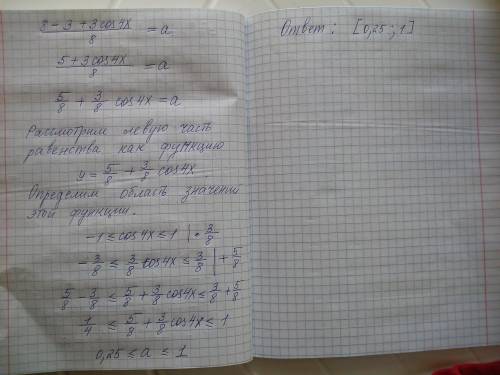 8 - 3 + 3cos4x / 8 = a
5 + 3cos4x / 8 = a
5/8 + 3/8 cos4x = a
Рассмотрим левую часть
равенства как функцию
y = 5/8 + 3/8 cos4x
Определим область значений
этой функции.
-1 ≤ cos4x ≤ 1 | · 3/8
-3/8 ≤ 3/8 cos4x ≤ 3/8 | + 5/8
5/8 - 3/8 ≤ 5/8 + 3/8 cos4x ≤ 3/8 + 5/8
1/4 ≤ 5/8 + 3/8 cos4x ≤ 1
0,25 ≤ a ≤ 1
Ответ: [0,25 ; 1]